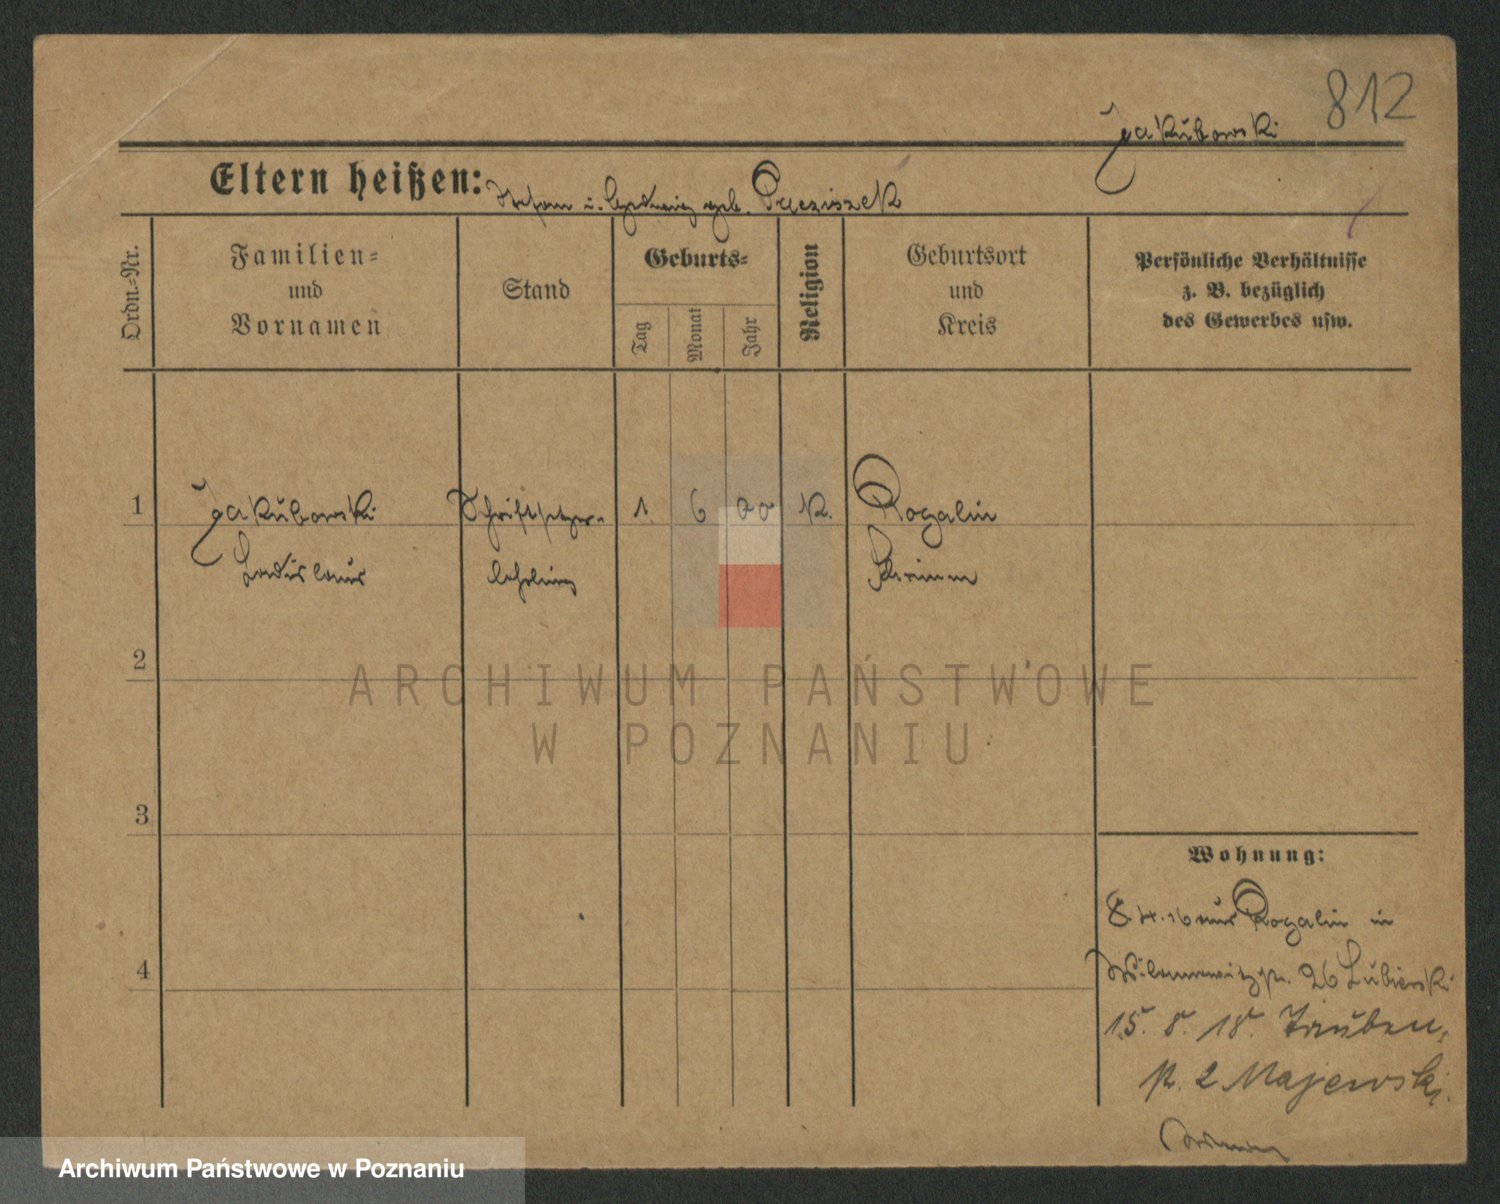 812
Jakubowski
Eltern heißen: Stefan u. Hedwig geb. Ptacziszek
Ordn.-Nr.
Familien-
und
Vornamen
Stand
Geburts-
Tag
Monat
Jahr
Religion
Geburtsort
und
Kreis
Persönliche Verhältnisse
z. B. bezüglich
des Gewerbes usw.
1
Jakubowski
Ladislaus
Schriftsetzer-
lehrling
1.
6
00
K.
Rogalin
Schrimm
2
3
4
ARCHIWUM PAŃSTWOWE
W POZNANIU
Wohnung:
8.4.16 aus Rogalin in
26 Lubierski
15. 8. 18. Tauben-
str. 2 Majewski
Archiwum Państwowe w Poznaniu